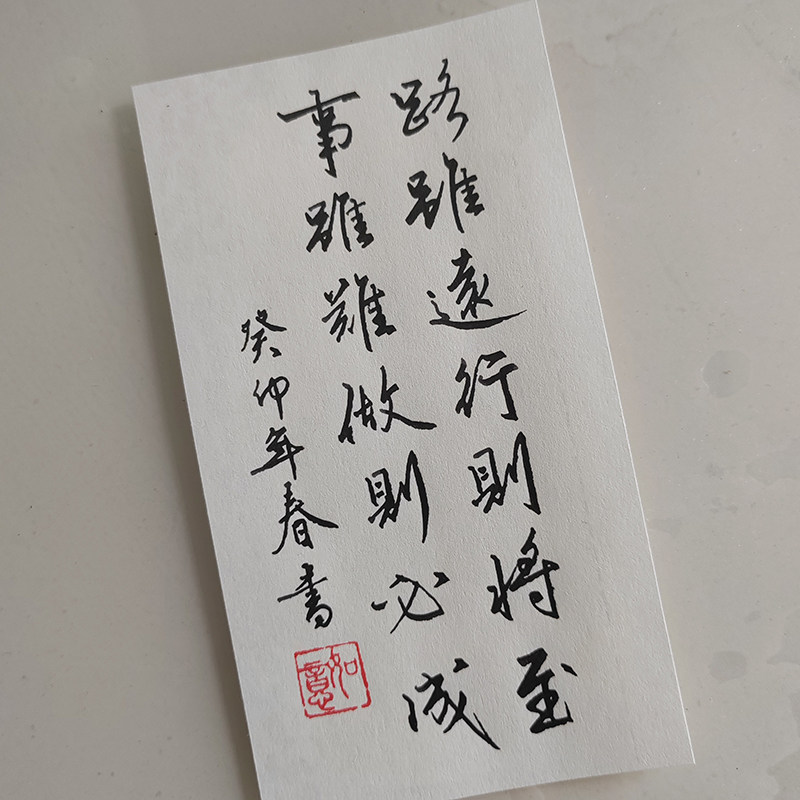 路雖遠行則將至
事雖難做則必成
癸卯年春書
如意